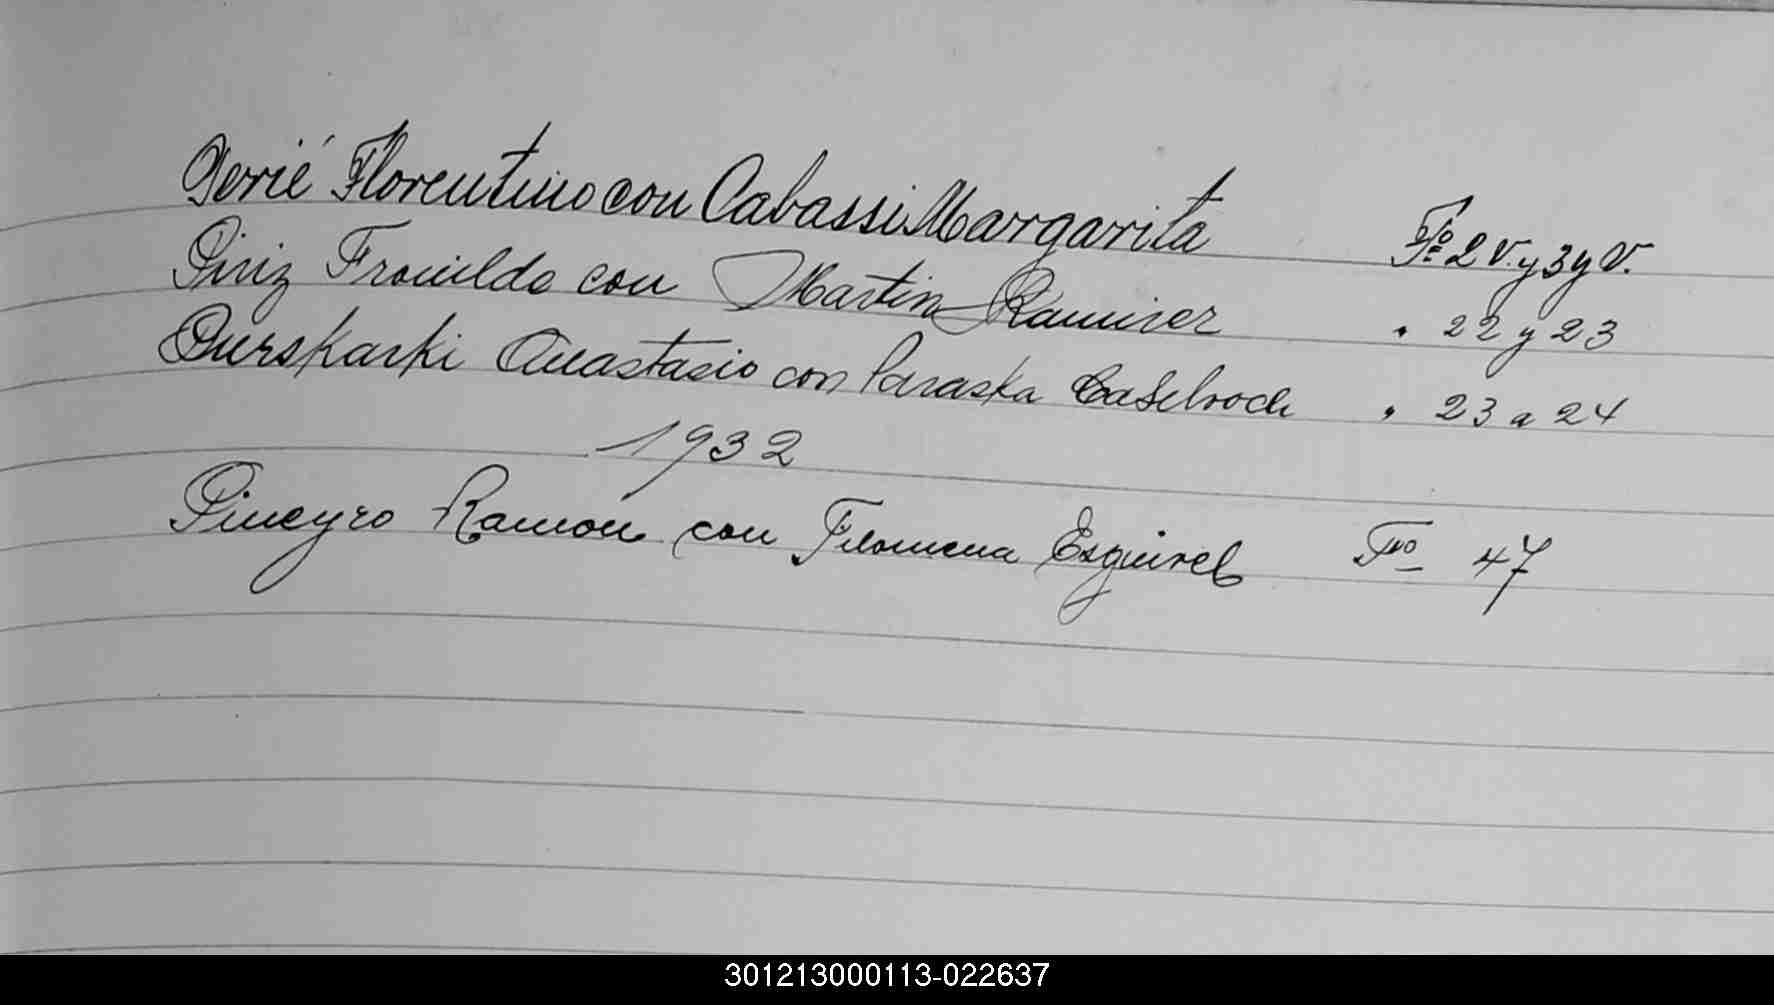 Perié Florentino con Cabassi Margarita Fº 2 V. y 3 y V.
Piriz Frouilde con Martin Ramirez " 22 y 23
Purskarki Anastasio con Paraska " 23 a 24
1932
Pineyro Ramon con Filomena Esquivel Fº 47
301213000113-022637